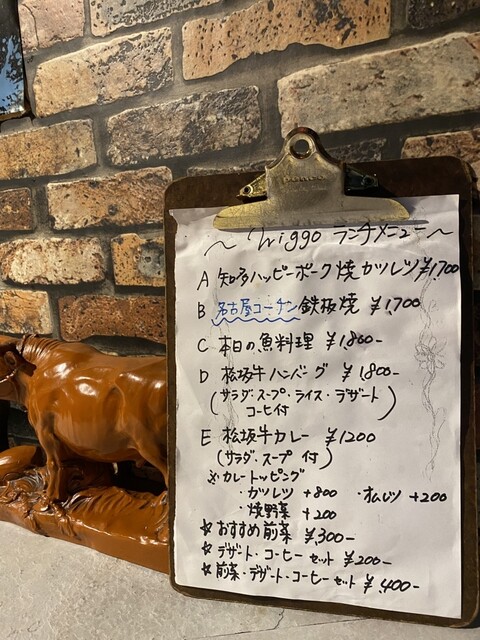 ～ Wiggo ランチメニュー ～
A 知多ハッピーポーク焼カツレツ ¥1,700
B 名古屋コーチン鉄板焼 ¥1,700
C 本日の魚料理 ¥1,800-
D 松坂牛ハンバーグ ¥1,800-
(サラダ・スープ・ライス・デザート
コーヒ付)
E 松坂牛カレー ¥1200
(サラダ、スープ 付)
※カレートッピング
・カツレツ +800 ・オムレツ +200
・焼野菜 +200
☆おすすめ前菜 ¥300-
☆デザート・コーヒーセット ¥200-
☆前菜・デザート・コーヒーセット ¥400-